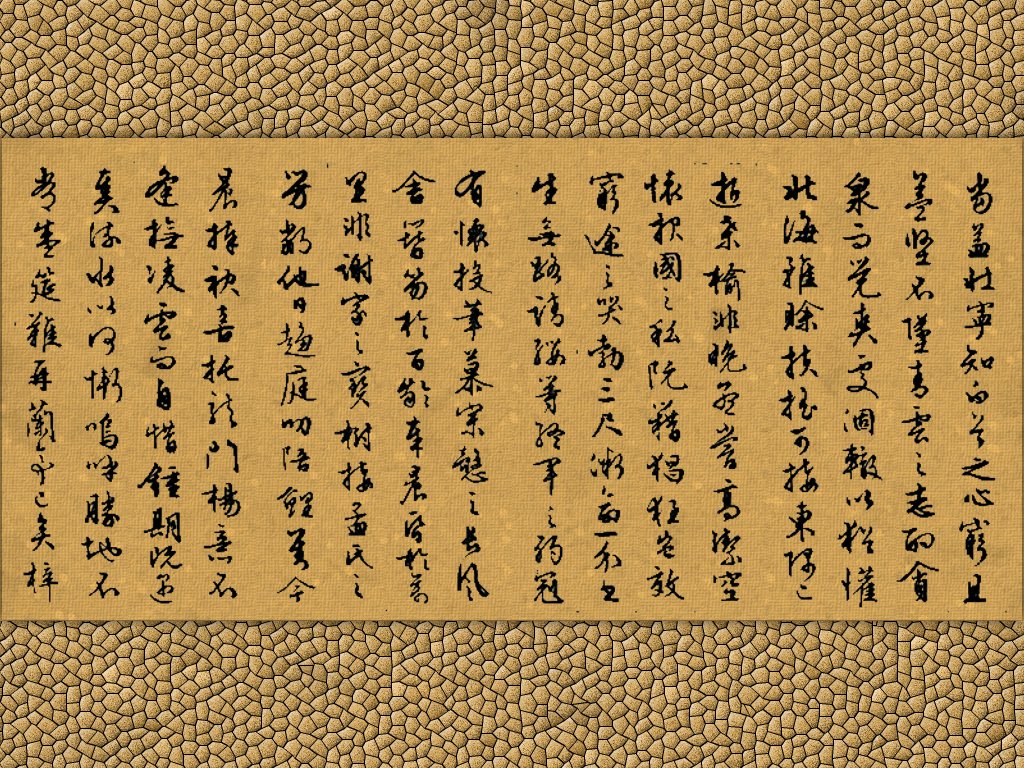 当益壯寧知白首之心窮且
益堅不墜青雲之志酌貪
泉而覺爽處涸轍以猶懽
北海雖賒扶摇可接東隅已
逝桑榆非晚孟嘗高潔空
懷報國之私阮籍猖狂豈效
窮途之哭勃三尺微命一介書
生無路請纓等終軍之弱冠
有懷投筆慕宗慤之長風
舍簪笏於百齡奉晨昏於萬
里非謝家之寶樹接孟氏之
芳鄰他日趨庭叨陪鯉對今
晨捧袂喜托龍門楊意不
逢撫凌雲而自惜鍾期既遇
奏流水以何慚嗚呼勝地不
常盛筵難再蘭亭已矣梓